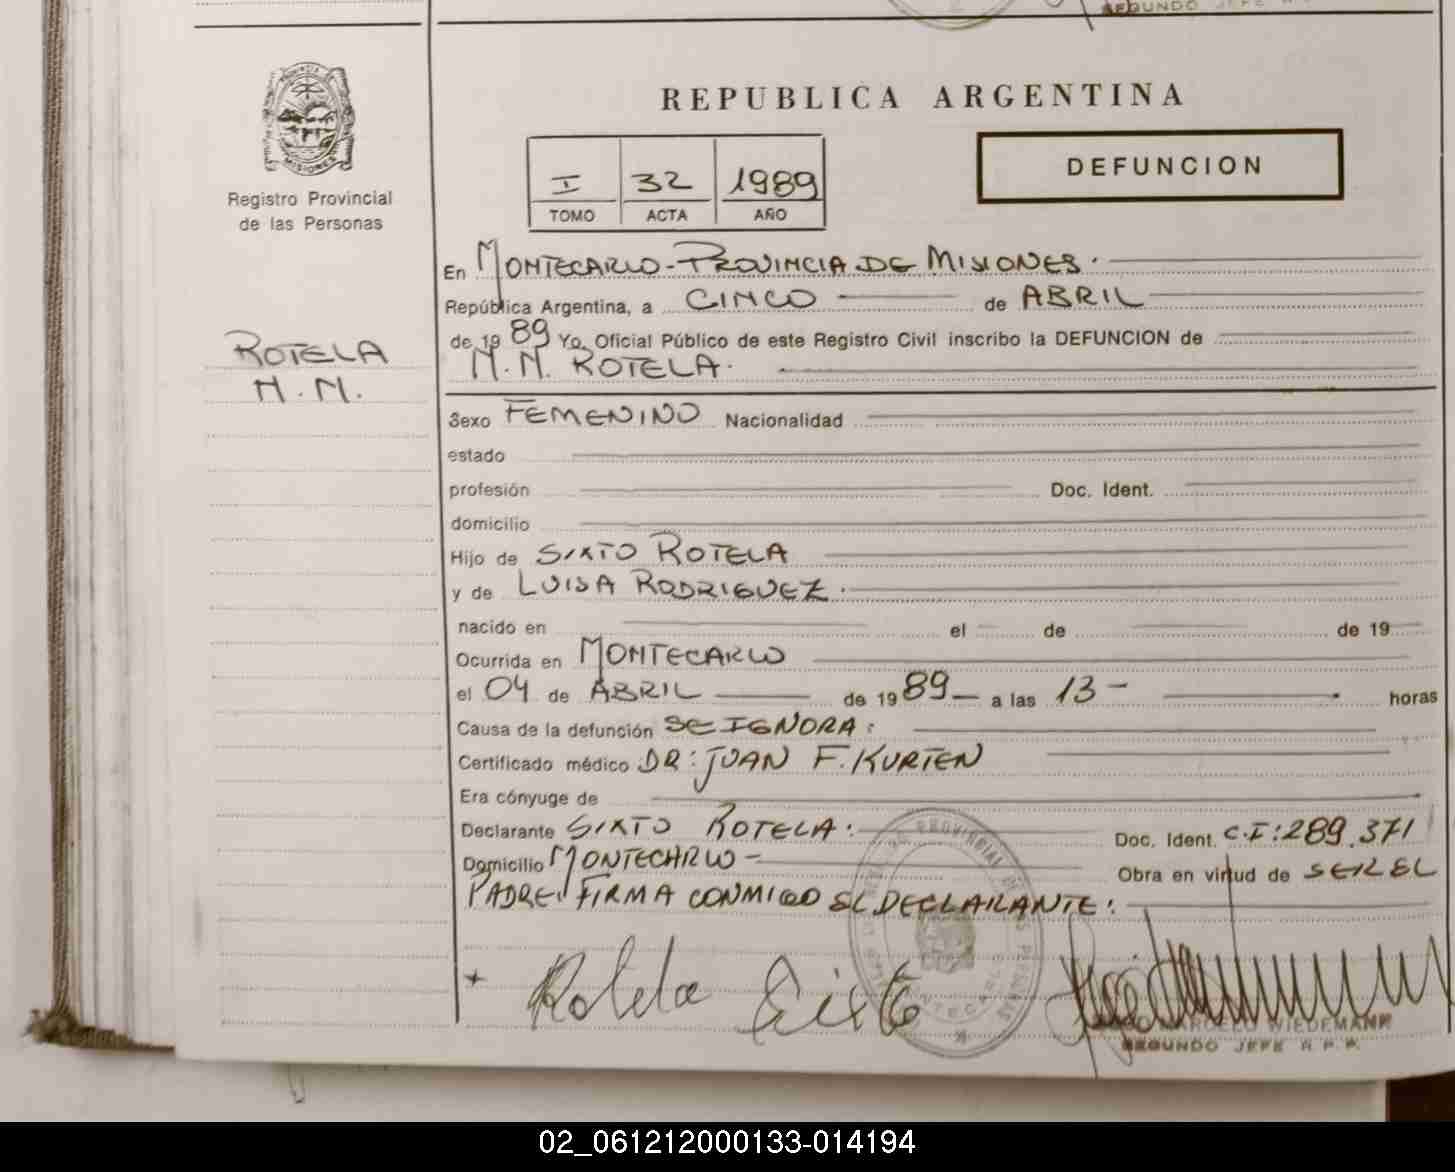 SEGUNDO JEFE R
PROVINCIA DE
MISIONES
Registro Provincial
de las Personas
ROTELA
N.N.
REPUBLICA ARGENTINA
I 32 1989
TOMO ACTA AÑO
DEFUNCION
En MONTECARLO - PROVINCIA DE MISIONES.
República Argentina, a CINCO de ABRIL
de 1989 Yo, Oficial Público de este Registro Civil inscribo la DEFUNCION de
N.N. ROTELA.
Sexo FEMENINO Nacionalidad
estado
profesión Doc. Ident.
domicilio
Hijo de SIXTO ROTELA
y de LUISA RODRIGUEZ.
nacido en el de de 19
Ocurrida en MONTECARLO
el 04 de ABRIL de 1989 a las 13 - horas
Causa de la defunción SE IGNORA:
Certificado médico DR: JUAN F. KURTEN
Era cónyuge de
Declarante SIXTO ROTELA. Doc. Ident. C.I: 289.371
Domicilio MONTECARLO - Obra en virtud de SER EL
PADRE: FIRMA CONMIGO EL DECLARANTE:
Rotela Sixto
MARCELO WIEDEMANN
SEGUNDO JEFE R.P.P.
02_061212000133-014194